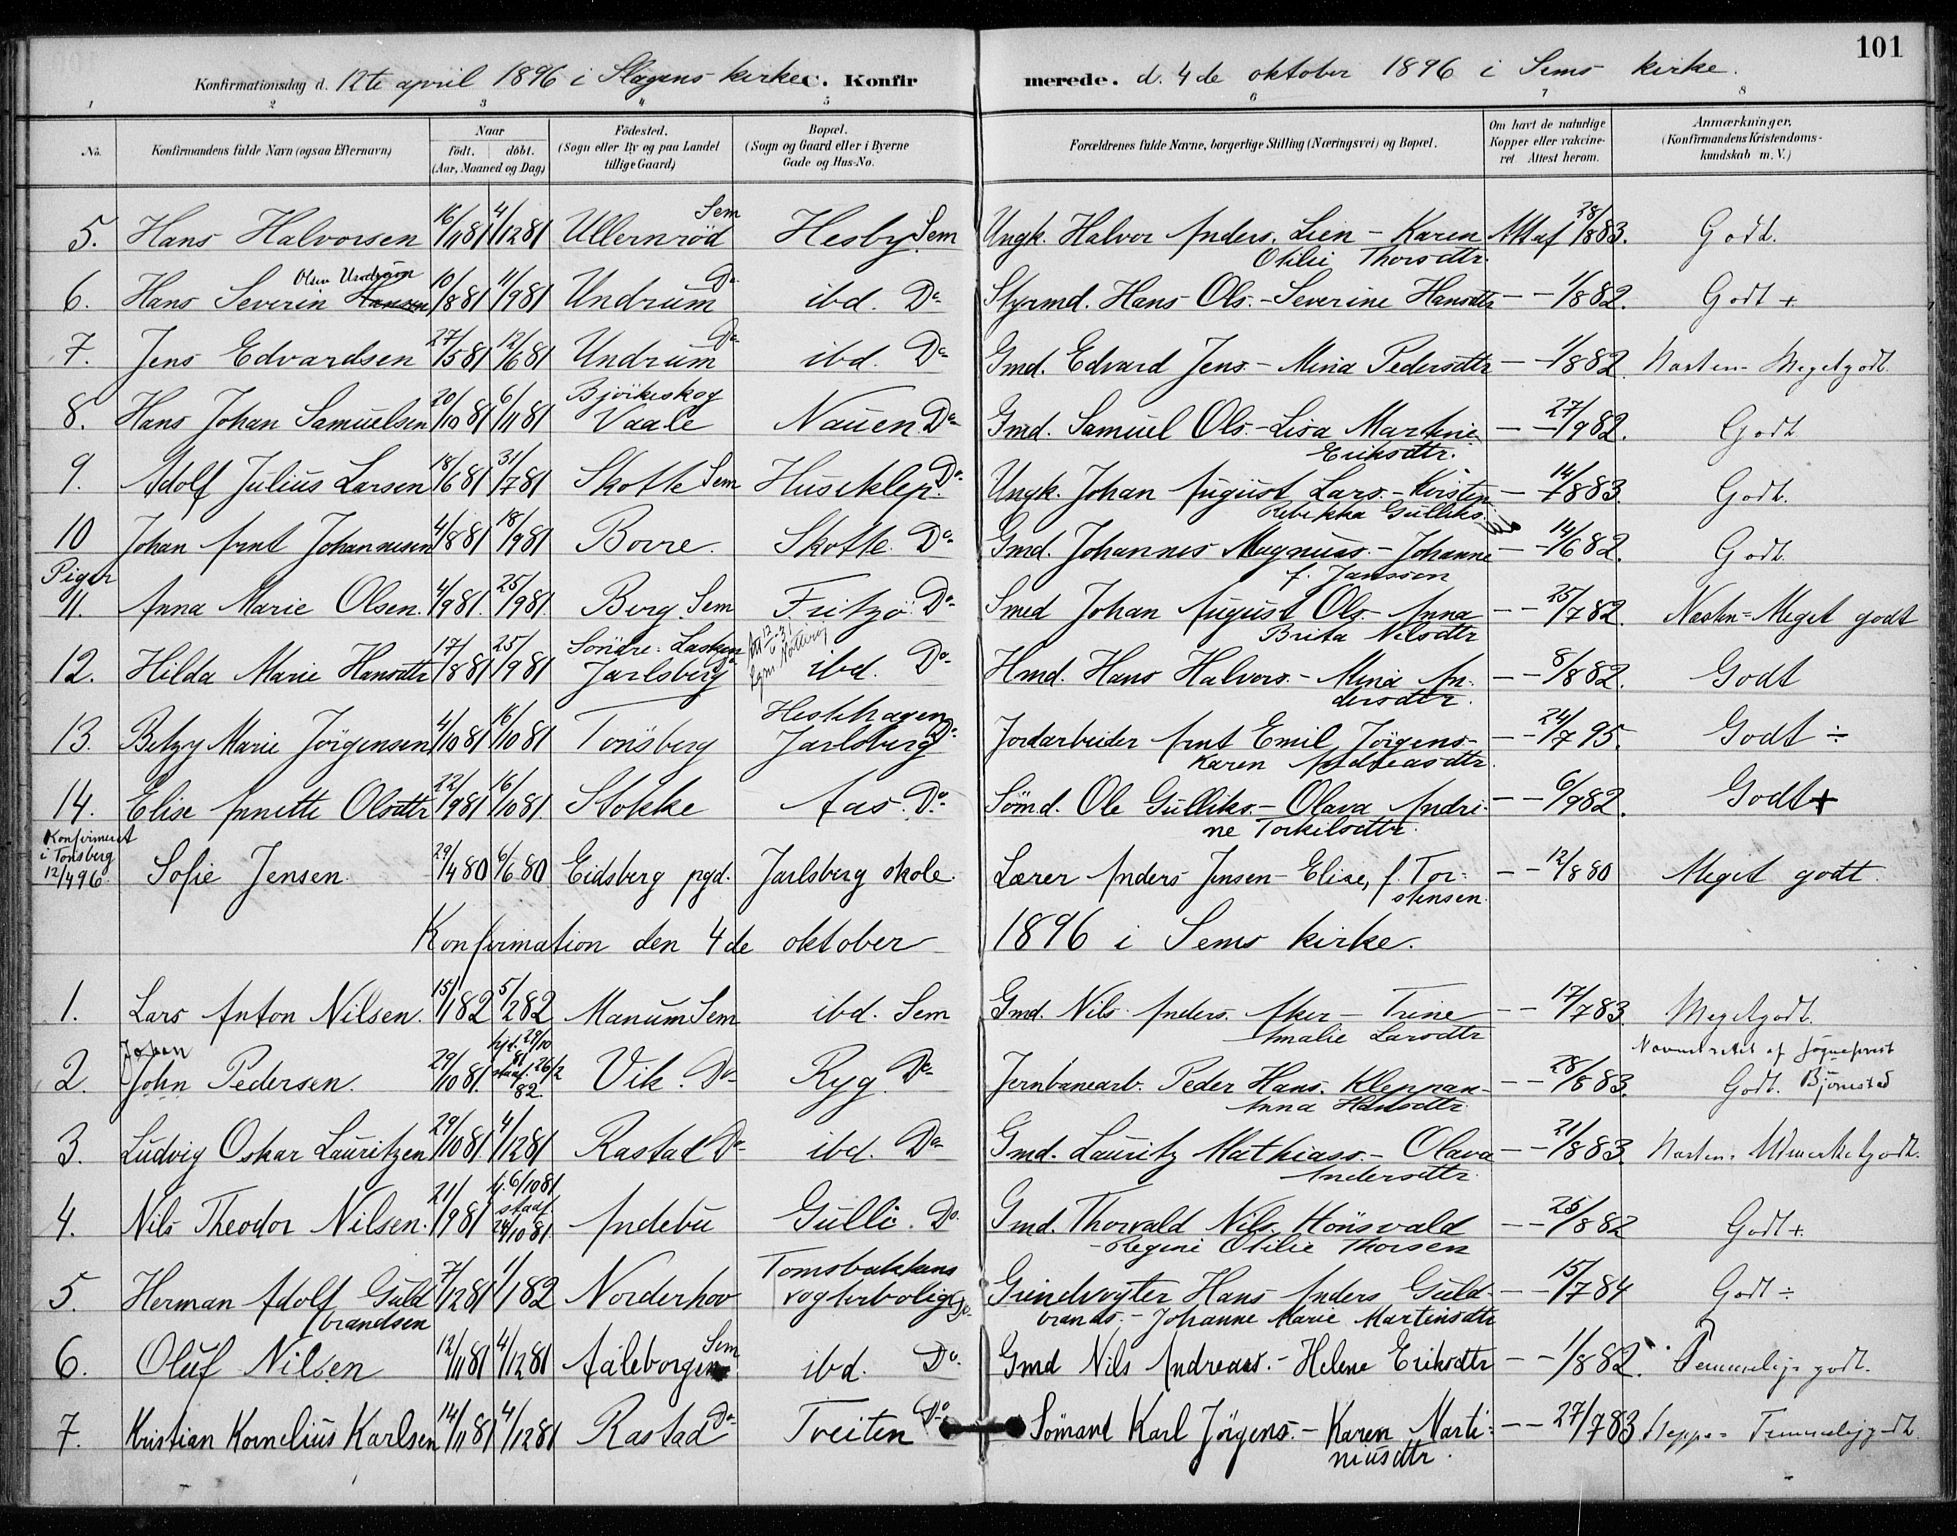 101
Konfirmationsdag d. 12te april 1896 i Slagens kirke C. Konfirmerede. d. 4de oktober 1896 i Sems kirke.
1 2 3 4 5 6 7 8
No. Konfirmandens fulde Navn (ogsaa Efternavn) Naar født, døbt. (Aar, Maaned og Dag) Fødested. (Sogn eller By og paa Landet tillige Gaard) Bopæl. (Sogn og Gaard eller i Byerne Gade og Hus-No. Forældrenes fulde Navne, borgerlige Stilling (Næringsvei) og Bopæl. Om havt de naturlige Kopper eller vakcineret Attest herom. Anmærkninger. (Konfirmandens Kristendomskundskab m. V.)
5. Hans Halvorsen 16/11 81 4/12 81 Ullernröd Sem Hesby Sem Ungk. Halvor Anders. Lien - Karen Otilie Thorsdtr. Att af 28/8 83. Godt.
6. Hans Severin Hansen Olsen Undrum 10/8 81 4/9 81 Undrum Do ibd. Do Styrmd. Hans Ols. - Severine Hansdtr - - 1/8 82. Godt +
7. Jens Edvardsen 27/5 81 12/6 81 Undrum Do ibd. Do Gmd. Edvard Jens. - Mina Pedersdtr - - 1/8 82. Næsten - Megetgodt.
8. Hans Johan Samuelsen 20/10 81 6/11 81 Bjvikeskog Vaale Nauen Do Gmd. Samuel Ols. - Lisa Martine Eriksdtr. - - 27/9 82. Godt
9. Adolf Julius Larsen 18/6 81 31/7 81 Skotte Sem Huseklep. Do Ungk. Johan August Lars. - Kirsten Rebekka Gulliks. - - 14/7 83. Godt.
10 Johan Arnt Johannesen 4/8 81 18/9 81 Borre. Skotte. Do Gmd. Johannes Magnus. - Johanne f. Jansson - - 14/6 82. Godt.
Piger
11. Anna Marie Olsen. 4/9 81. 25/9 81 Berg. Sem Fritzö Do Smed Johan August Ols. - Anna Brita Nilsdtr - - 25/7 82. Næsten = Meget godt
12. Hilda Marie Hansdtr 17/8 81 25/9 81 Söndre: Jarlsberg ibd. Do Hmd. Hans Halvors. - Mina Andersdtr. - - 8/8 82. Godt
13. Betzy Marie Jörgensen 4/10 81 16/10 81 Tönsberg Hestehagen Jarlsberg Do Jordarbeider Arnt Emil Jörgens - Karen Andreasdtr. - - 24/7 95. Godt ÷
14. Elise Annette Olsdtr 22/9 81 16/10 81 Stokke Aas. Do Sömd. Ole Gulliks. - Olava Andrine Torkilsdtr. - - 6/9 82. Godt +
Konfirmeret i Tönsberg 12/4 96. Sofie Jensen. 29/4 80 6/6 80 Eidsberg pgd. Jarlsberg skole. Lærer Anders Jensen - Elise, f. Torstensen. - - 12/8 80 Meget godt.
Konfirmation den 4de oktober 1896 i Sems kirke.
1. Lars Anton Nilsen. 15/1 82 5/2 82 Manum Sem ibd. Sem Gmd. Nils Anders. Aker - Trine Amalie Larsdtr - - 17/7 83. Megetgodt.
2. John Johan Pedersen. 29/10 81. hjd. 29/10 81 stadf. 26/2 82. Vik. Do Ryg. Do Jernbanearb. Peder Hans. Kleppan - Anna Hansdtr. - - 28/8 83. Godt. Navnet rettet af sogneprest Bjørnstad
3. Ludvig Oskar Lauritzen 29/10 81 4/12 81 Rastad Do ibd. Do Gmd. Lauritz Mathiass. - Olava Andersdtr. - - 21/8 83. Næsten = Udmerketgodt.
4. Nils Theodor Nilsen. 21/9 81 hj. 6/10 81 stadf. 24/10 81. Andebu Gulli. Do Gmd. Thorvald Nils. Hönsvald - Regine Otilie Thorsen - - 25/8 82 Godt +.
5. Herman Adolf Guldbrandsen 7/12 81 1/1 82 Norderhov Tomsbakkens vogterbolig Do Grindvogter Hans Anders Guldbrands. - Johanne Marie Martinsdtr - - 15/7 84 Godt ÷
6. Oluf Nilsen 12/11 81 4/12 81 Aaleborgen Sem ibd. Do Gmd Nils Andreas. - Helene Eriksdtr - - 1/8 82. Temmelig godt.
7. Kristian Kornelius Karlsen 14/11 81 4/12 81 Rastad Do Treiten Do Sömand Karl Jörgens. - Karen Martiniusdtr. - - 27/7 83 Neppe = Temmeliggodt.